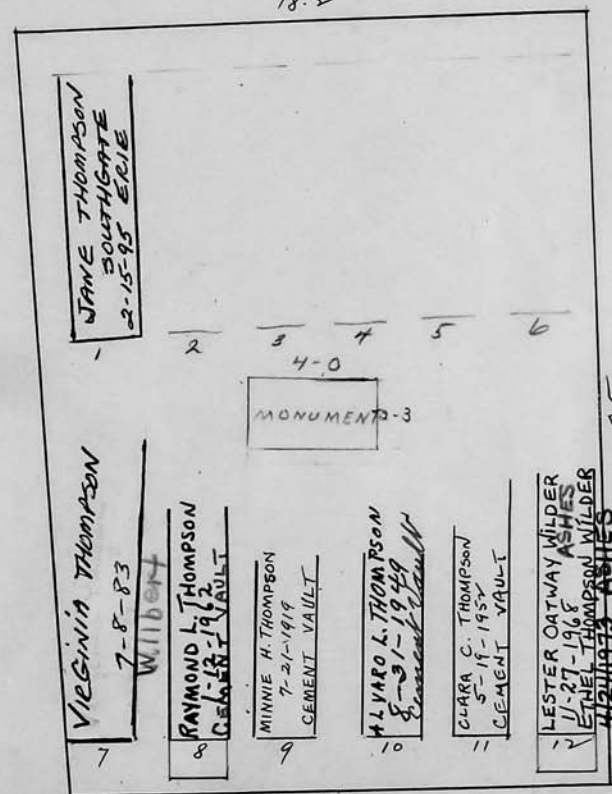 18.
JANE THOMPSON
SOUTHGATE
2-15-95 ERIE
1
2
3
4
5
6
4-0
MONUMENT 2-3
VIRGINIA THOMPSON
7-8-83
Wilbert
7
RAYMOND L. THOMPSON
1-12-1962
CEMENT VAULT
8
MINNIE H. THOMPSON
7-21-1919
CEMENT VAULT
9
ALVARO L. THOMPSON
8-31-1949
Cement Vault
10
CLARA C. THOMPSON
5-19-1952
CEMENT VAULT
11
LESTER OATWAY WILDER
11-27-1968 ASHES
ETHEL THOMPSON WILDER
1973 ASHES
12